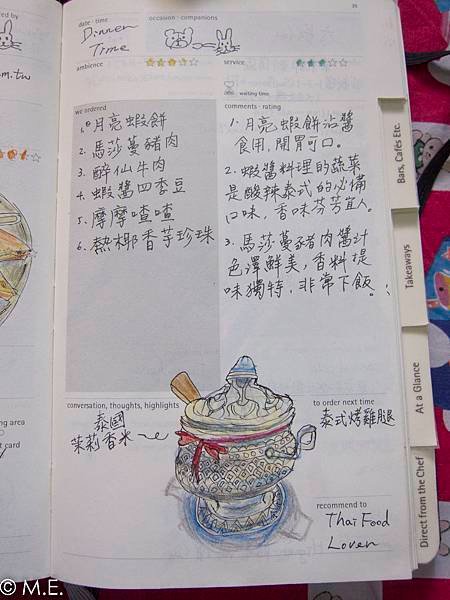 35
ed by
date · time
occasion · companions
Dinner
Time
m.tw
ambience
service
waiting time
we ordered
comments · rating
1. 月亮蝦餅
2. 馬莎蔓豬肉
3. 醉仙牛肉
4. 蝦醬四季豆
5. 摩摩喳喳
6. 熱椰香芋珍珠
1. 月亮蝦餅沾醬
食用，開胃可口。
2. 蝦醬料理的蔬菜
是酸辣泰式的必備
口味，香味芬芳宜人。
3. 馬莎蔓豬肉醬汁
色澤鮮美，香料提
味獨特，非常下飯。
conversation, thoughts, highlights
to order next time
泰國
茉莉香米
泰式烤雞腿
ing area
t card
recommend to
Thai Food
Lover
Bars, Cafés Etc.
Takeaways
At a Glance
Direct from the Chef
© M.E.